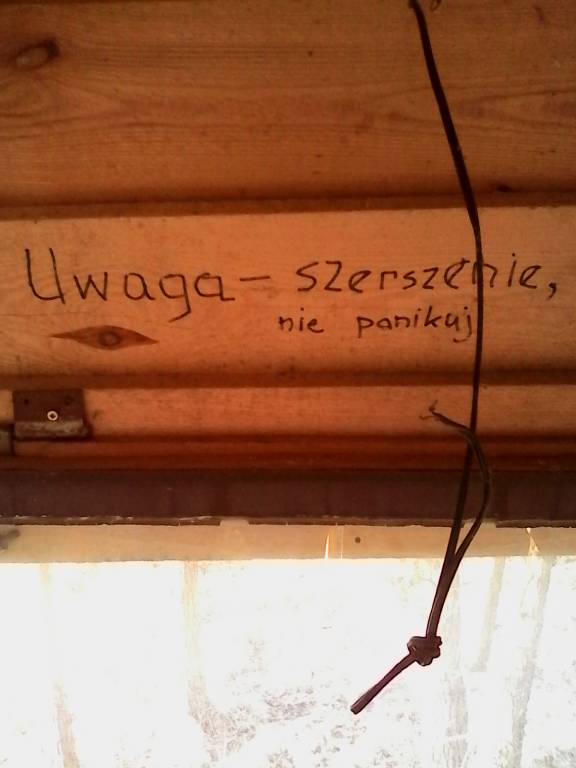 Uwaga – szerszenie,
nie panikuj